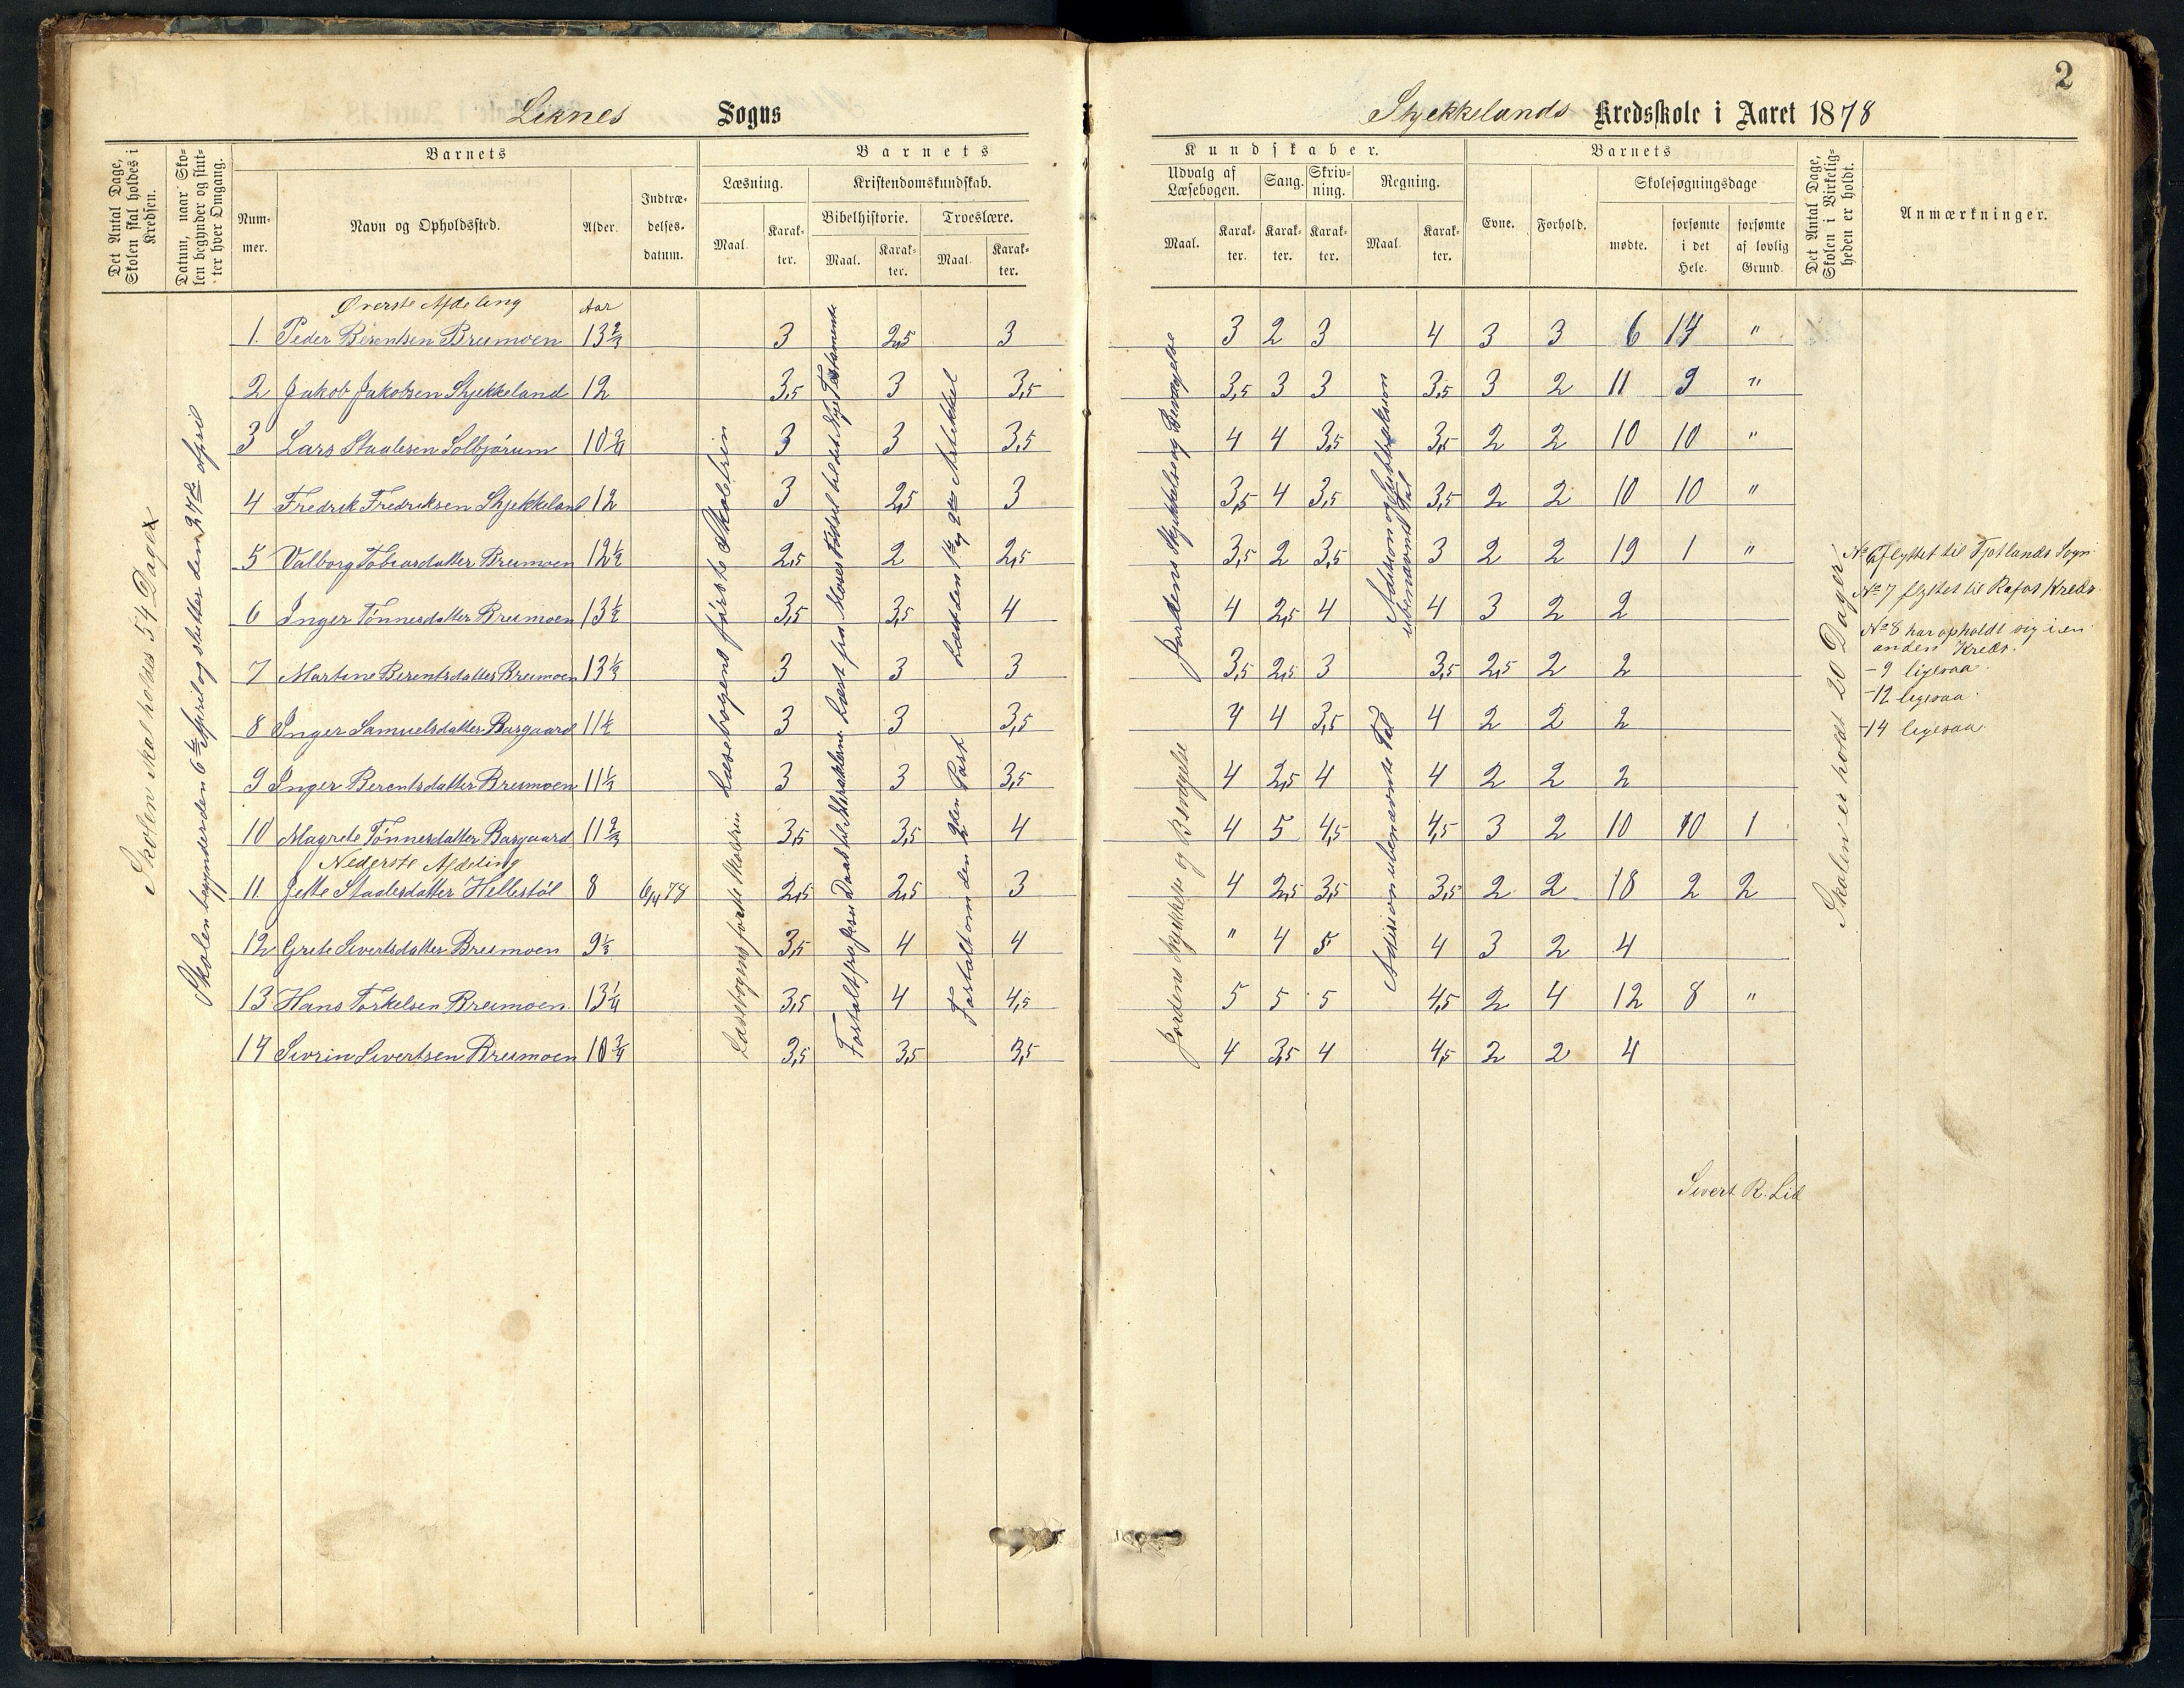 2
Liknes Sogns Stjekkelands Kredsskole i Aaret 1878
Det Antal Dage, Skolen skal holdes i Kredsen.
Datum, naar Skolen begynder og slutter hver Omgang.
Barnets
Nummer.
Navn og Opholdssted.
Alder.
Indtrædelses-datum.
Barnets
Læsning.
Maal.
Karakter.
Kristendomskundskab.
Bibelhistorie.
Maal.
Karakter.
Troeslære.
Maal.
Karakter.
Kundskaber.
Udvalg af Læsebogen.
Maal.
Karakter.
Sang.
Karakter.
Skrivning.
Karakter.
Regning.
Maal.
Karakter.
Barnets
Evne.
Forhold.
Skolesøgningsdage
mødte.
forsømte i det Hele.
forsømte af lovlig Grund.
Det Antal Dage, Skolen i Virkeligheden er holdt.
Anmærkninger.
Skolen skal holdes 54 Dage
Skolen begynder den 6te April og slutter den 27de April
Øverste Afdeling Aar
1. Peder Berentsen Breimoen 13 2/3 3 2,5 3 3 2 3 4 3 3 6 14 "
2 Jakob Jakobsen Stjekkeland 12 3,5 3 3,5 3,5 3 3 3,5 3 2 11 9 "
3 Lars Staalesen Solbjørum 10 3/4 3 3 3,5 4 4 3,5 3,5 2 2 10 10 "
4 Fredrik Fredriksen Stjekkeland 12 3 2,5 3 3,5 4 3,5 3,5 2 2 10 10 "
5 Valborg Tobiasdatter Breimoen 12 1/2 2,5 2 2,5 3,5 2 3,5 3 2 2 19 1 "
6 Inger Tønnesdatter Breimoen 13 1/2 3,5 3,5 4 4 2,5 4 4 3 2 2
7 Martine Berentsdatter Breimoen 13 1/3 3 3 3 3,5 2,5 3 3,5 2,5 2 2
8 Inger Samuelsdatter Busgaard 11 1/2 3 3 3,5 4 4 3,5 4 2 2 2
9 Inger Berentsdatter Breimoen 11 1/3 3 3 3,5 4 2,5 4 4 2 2 2
10 Magrete Tønnesdatter Busgaard 11 2/3 3,5 3,5 4 4 5 4,5 4,5 3 2 10 10 1
Nederste Afdeling
11. Jette Staalesdatter Hellestøl 8 6/4 78 2,5 2,5 3 4 2,5 3,5 3,5 2 2 18 2 2
12 Grete Sivertsdatter Breimoen 9 1/3 3,5 4 4 " 4 5 4 3 2 4
13 Hans Torkelsen Breimoen. 13 1/4 3,5 4 4,5 5 5 5 4,5 2 4 12 8 "
14 Sivrin Sivertsen Breimoen 10 3/4 3,5 3,5 3,5 4 3,5 4 4,5 2 2 4
Læsebogens første Skoletrin
Læsebogens første Skoletrin
Læst fra Moses Fødsel til det Nye Testamente
Fortalt fra Jesu Daab til Miraklerne
Læst den 1ste og 2den Artikkel
Fortalt om den 2den Part
Jordens Skikkelse og Bevægelse
Jordens Skikkelse og Bevægelse
Addision og Subtraksion ubenævnte Tal
Addision ubenævnte Tal
Skolen er holdt 20 Dager
No 6 flyttet til Fjotlands Sogn
No 7 flyttet til Rafos Kreds.
No 8 har opholdt sig i en
anden Kreds.
- 9 ligesaa.
- 12 ligesaa.
- 14 ligesaa.
Sivert R. Lid